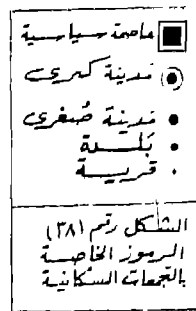 عاصمة سياسية
مدينة كبرى
مدينة صغرى
بلدة
قرية
الشكل رقم (٣٨)
الرموز الخاصة
بالتجمعات السكانية